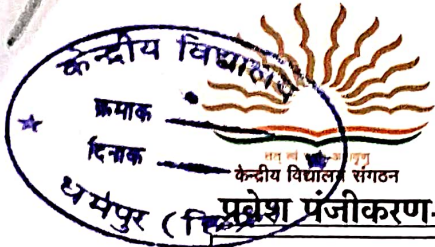 केन्द्रीय विद्यालय
क्रमांक
दिनांक
धर्मपुर
केन्द्रीय विद्यालय संगठन
प्रवेश पंजीकरण-